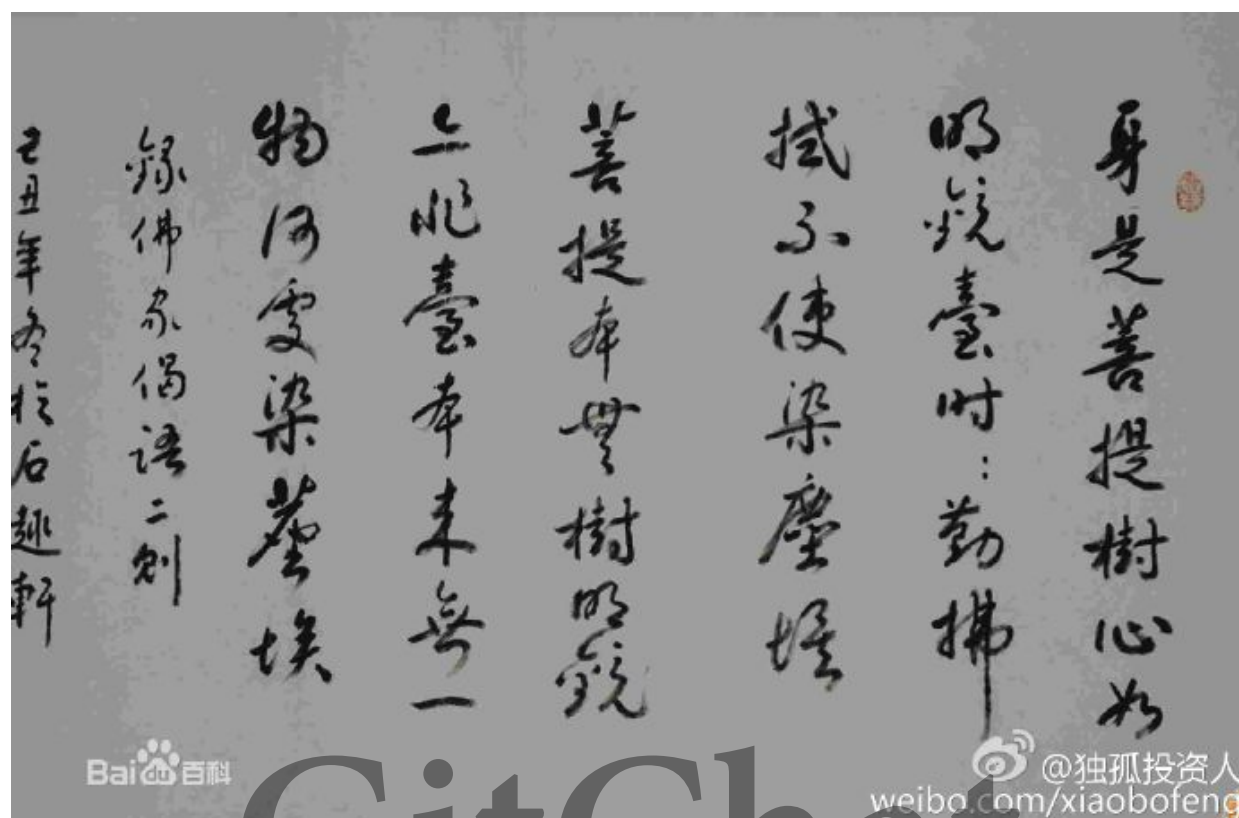 身是菩提樹心如
明鏡臺时:勤拂
拭不使染塵埃
菩提本無樹明鏡
亦非臺本來無一
物何處染塵埃
錄佛家偈語二則
己丑年冬於石趣軒
Bai du 百科
@独孤投资人
weibo.com/xiaobofeng
GitChat